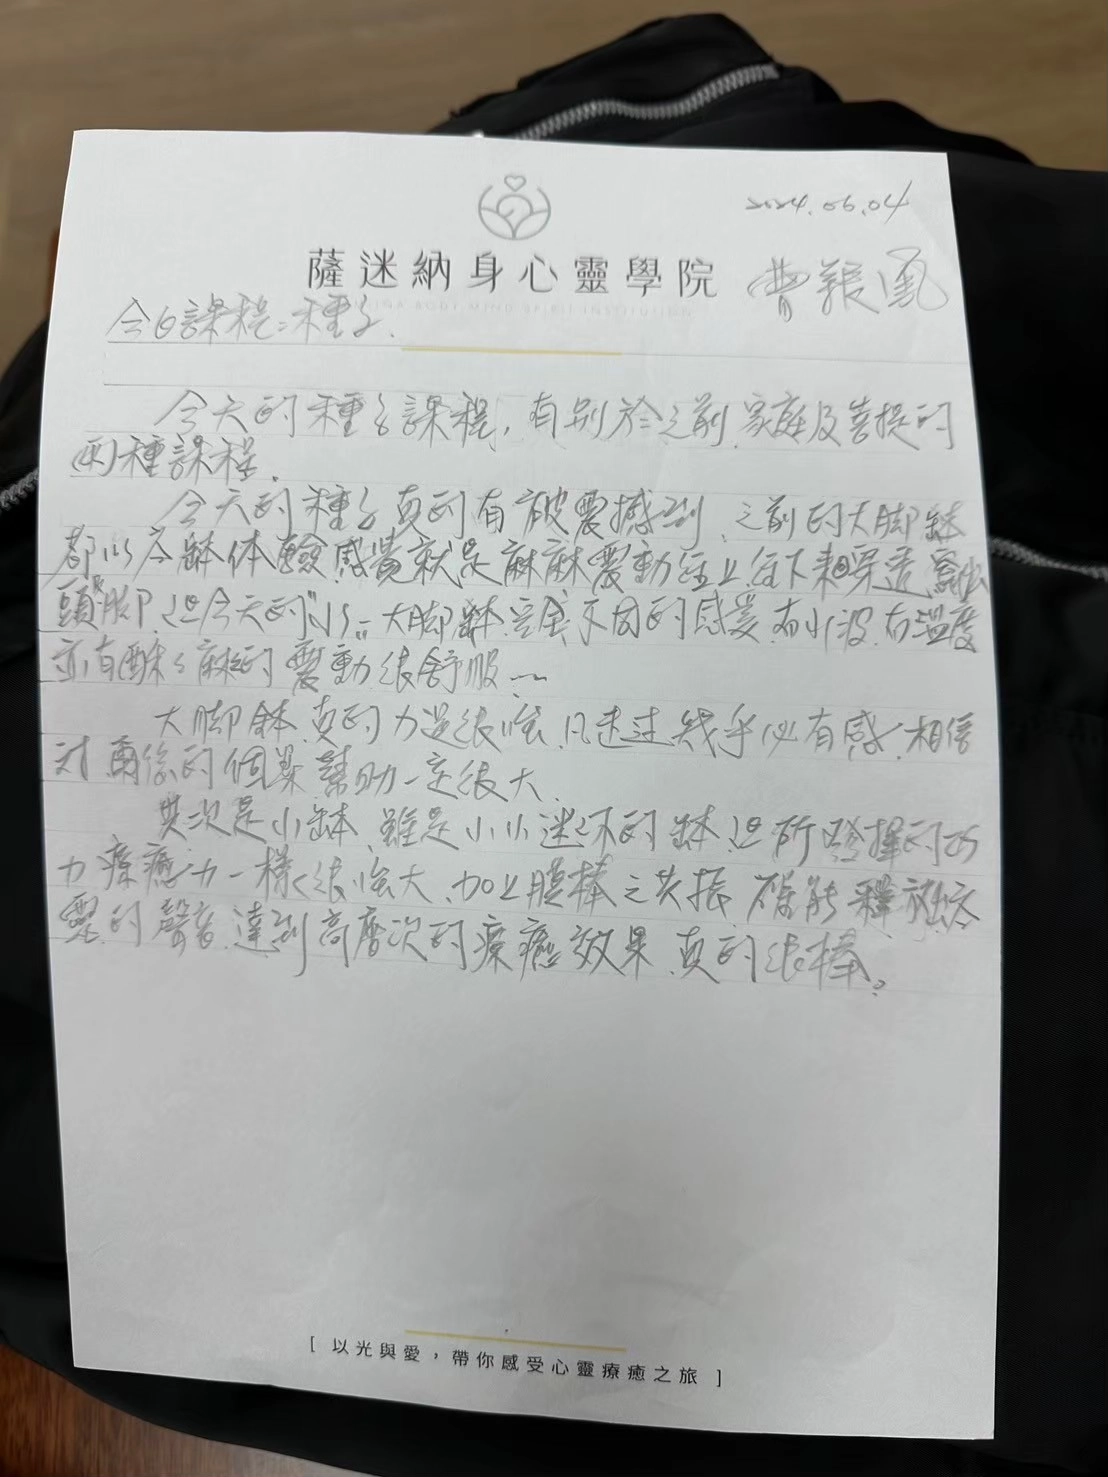 2024.06.04
薩迷納身心靈學院
今日課程:種子.
今天的種子課程,有別於之前家庭及菩提的
兩種課程.
今天的種子真的有被震撼到,之前的大脚缽
都以 缽体驗感覺就是麻麻震動往上往下 穿透
頭脚,但今天的 大脚缽完全不同的感受 有 波有温度
亦有酥酥麻麻的震動很舒服~
大脚缽真的力道很 几乎必有感,相信
對 的個案幫助一定很大.
其次是小缽,雖是小小迷你的缽,但所發揮的功
力療癒力一樣很強大,加上 棒之共振
靈的聲音,達到高層次的療癒效果,真的很棒。
[ 以光與愛,帶你感受心靈療癒之旅 ]